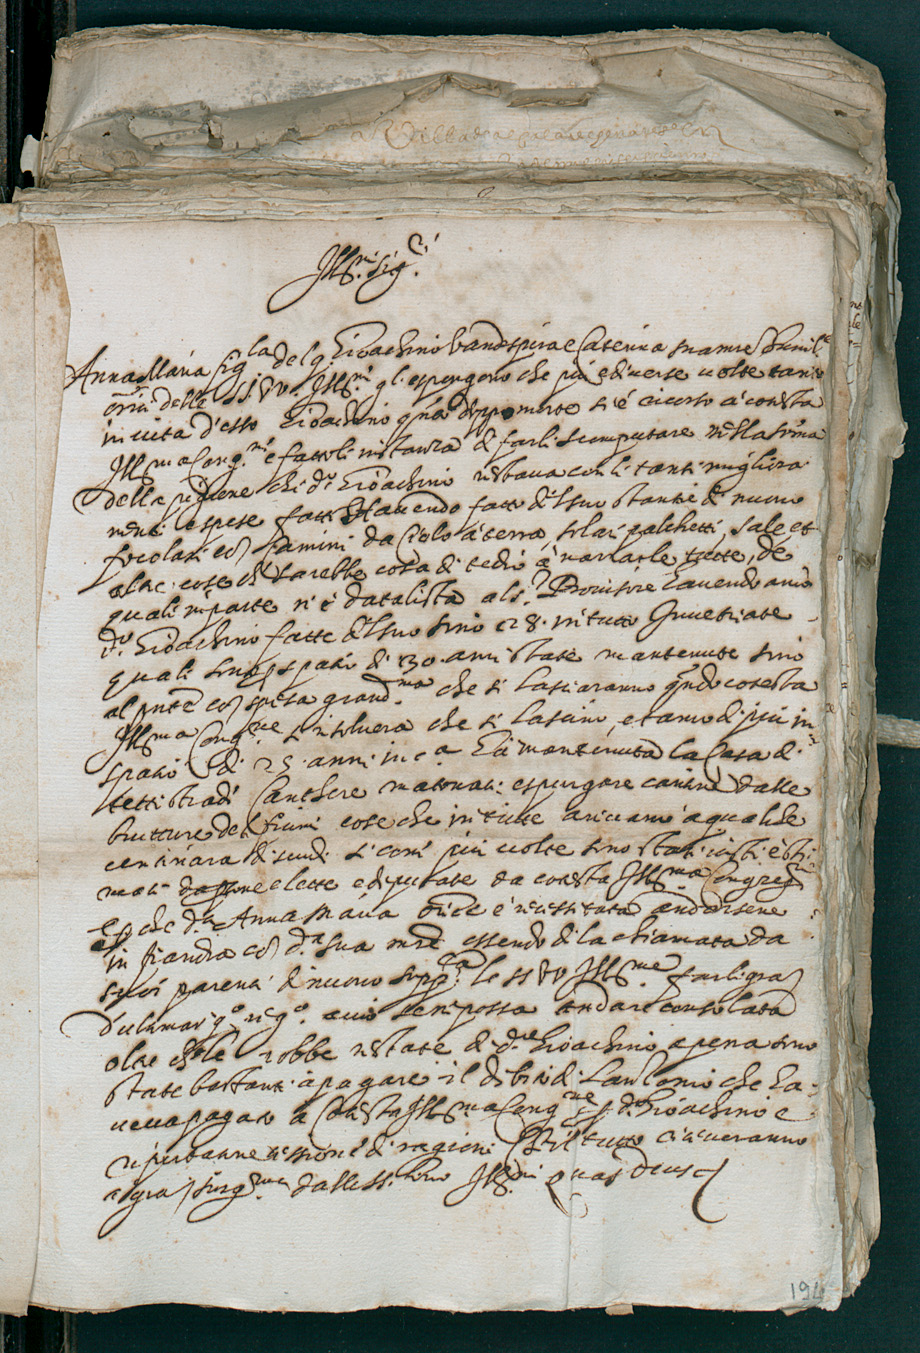 Ill.mi Sig.ri
Anna Maria fig.la del q. Gioachino Vandespira e Caterina sua mre humil.e
delle SS. VV. Ill.mi gl'espongono che più e diverse volte tanto
in vita d'esso Gioachino q.nto doppo morte si è ricorso à cotesta
Ill.ma Cong.ne e fattoli instanza di farli scomputare nella
della piggione che d.o Gioachino restava con li tanti migliora
menti e spese fatti havendo fatto del suo stantie di nuovo
focolari con camini da cielo à terra, solari palchetti, sale et
altre cose che sarebbe cosa di tedio à narrarle tutte, de
quali in parte n'è data lista al s.r Proveditore havendo anco
d.o Gioachino fatte del suo sino 28. in tutto Invetriate
quali sino spatio di 30. anni state mantenute sino
al pnte con spesa grand.ma che si lasciaranno q.ndo cotesta
Ill.ma Cong.ne risolverà che si lascino, et anco di più in
spatio di 25. anni in c.a hà mantenuta la Casa di
tetti stradi mattonati espurgare camini dalle
brutture del cose che in tutte arrivano à qualche
centinara di scudi si come più volte sono stati visti e sti
mati da psone elette e deputate da cotesta Ill.ma Congreg.ne
e p che d.a Anna Maria dice è necessitata andarsene
in fiandra con d.a sua mre essendo di la chiamata da
suoi parenti di nuovo supp.ca le SS. VV. Ill.me farli gra
d'ulimar q.o neg.o acciò se ne possa andare consolata
oltre che le robbe restate di d.o Gioachino apena sono
state bastanti à pagare il debito di Lantonio che ha
veva pagato à Cotesta Ill.ma Cong.ne p d.o Gioachino e
cessione di ragioni Che il tutto riceveranno
à gra sing.ma dalle SS. loro Ill.mi Quas Deus
194